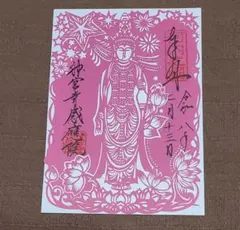 奉拝
令和八年
二月十三日
神宮寺感應院